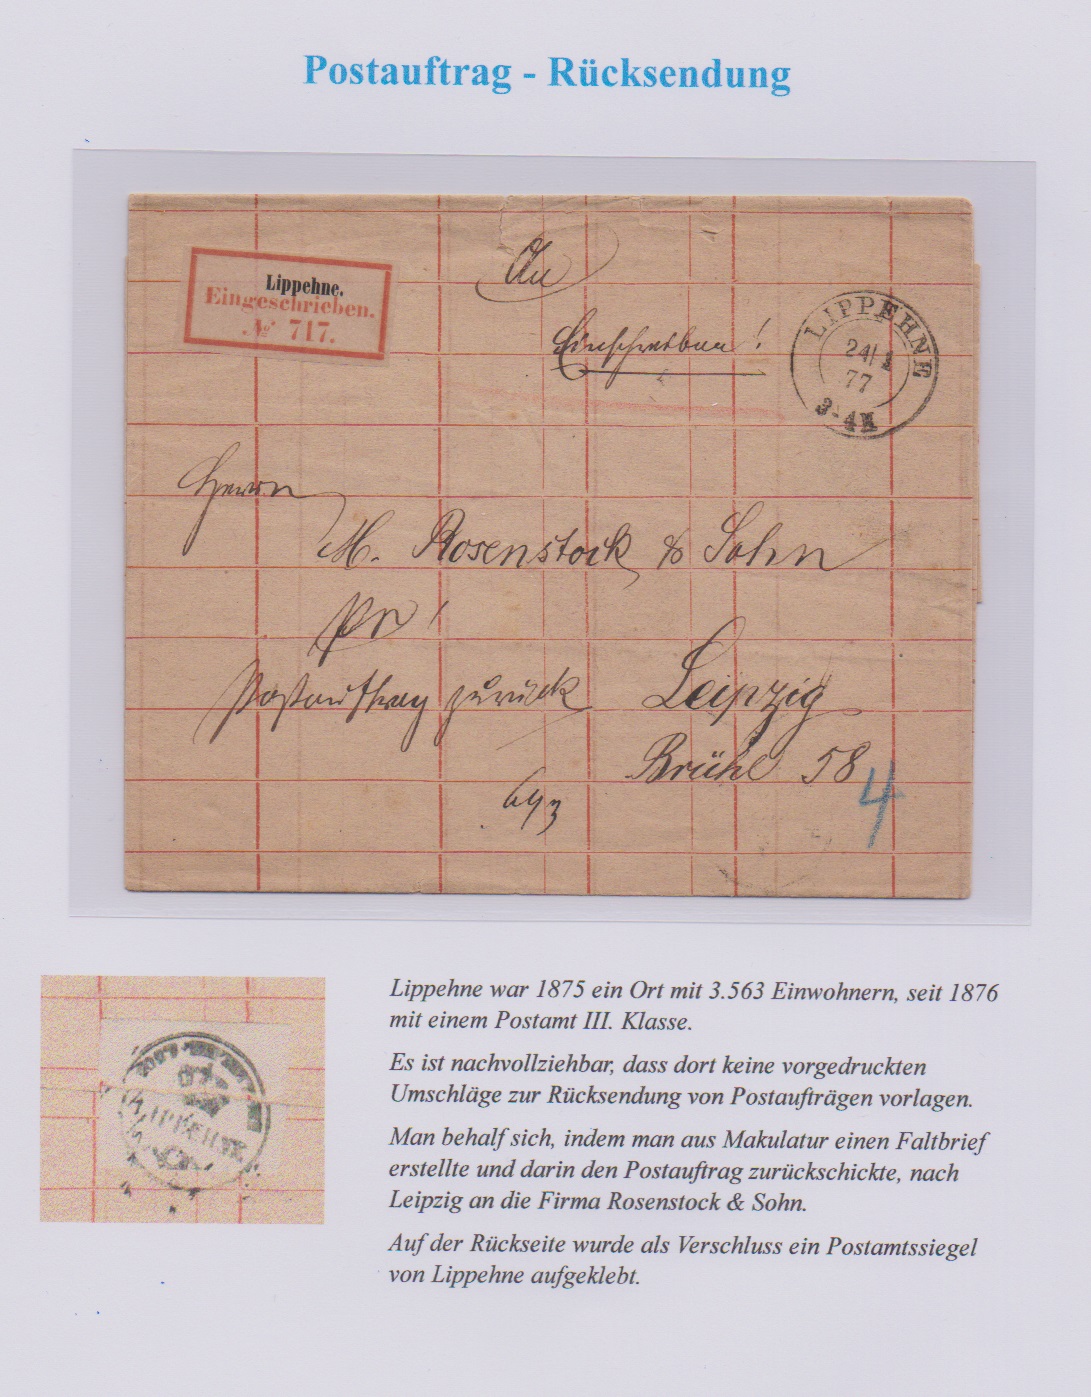 Postauftrag - Rücksendung
Lippehne.
Eingeschrieben.
№ 717.
An
Einschreiben!
LIPPEHNE
24/1
77
3-4N
Herrn
M. Rosenstock & Sohn
Postauftrag zurück
Leipzig
Brühl 58
4
LIPPEHNE
Lippehne war 1875 ein Ort mit 3.563 Einwohnern, seit 1876
mit einem Postamt III. Klasse.
Es ist nachvollziehbar, dass dort keine vorgedruckten
Umschläge zur Rücksendung von Postaufträgen vorlagen.
Man behalf sich, indem man aus Makulatur einen Faltbrief
erstellte und darin den Postauftrag zurückschickte, nach
Leipzig an die Firma Rosenstock & Sohn.
Auf der Rückseite wurde als Verschluss ein Postamtssiegel
von Lippehne aufgeklebt.